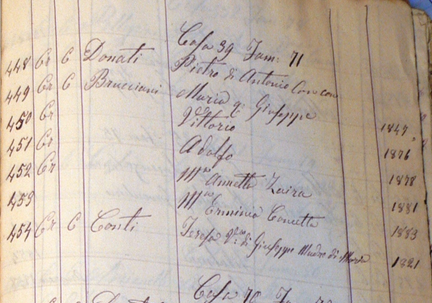 Casa 39 Fam: 71
448 Cr C Donati Pietro di Antonio
449 Cr C Bracciani Maria q Giuseppe
450 Cr Vittorio 1847
451 Cr Adolfo 1876
452 Cr Mª Annetta Zaira 1878
453 Mª Erminia Concetta 1881
454 Cr C Conti Teresa di Giuseppe Madre di Maria 1821
Casa